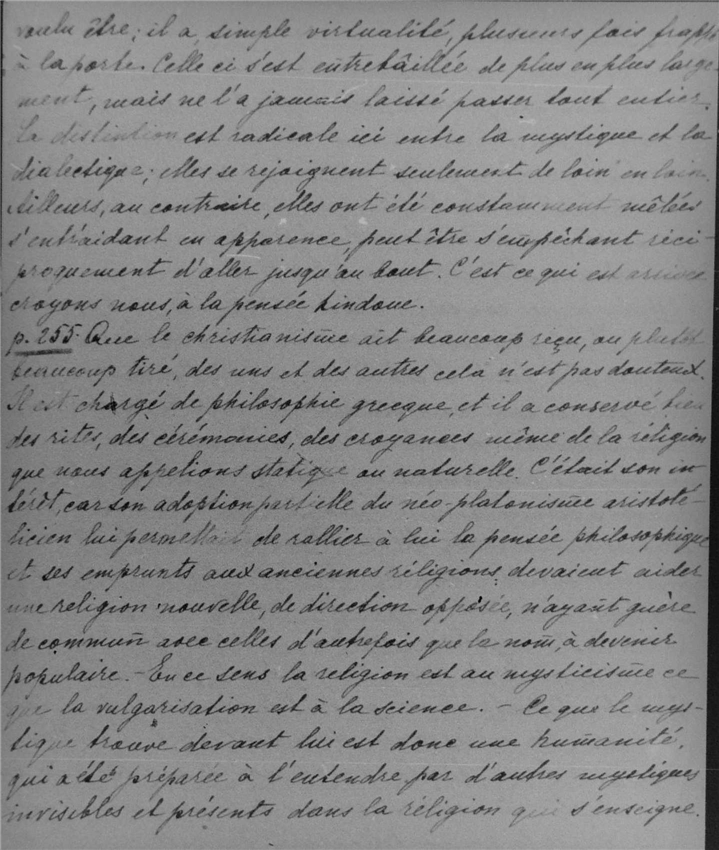 voulu être; il a, simple virtualité, plusieurs fois frappé
à la porte. Celle ci s'est entrebâillée de plus en plus large-
ment, mais ne l'a jamais laissé passer tout entier.
La distintion est radicale ici entre la mystique et la
dialectique; elles se rejoignent seulement de loin en loin.
Ailleurs, au contraire, elles ont été constamment mêlées
s'entr'aidant en apparence, peut être s'empêchant réci-
proquement d'aller jusqu'au bout. C'est ce qui est arrivé
croyons nous, à la pensée hindoue.
p. 255. Que le christianisme ait beaucoup reçu, ou plutôt
beaucoup tiré, des uns et des autres cela n'est pas douteux.
Il est chargé de philosophie grecque, et il a conservé bien
des rites, des cérémonies, des croyances même de la réligion
que nous appelions statique ou naturelle. C'était son in
térêt, car son adoption partielle du néo-platonisme aristoté-
licien lui permettait de rallier à lui la pensée philosophique
et ses emprunts aux anciennes réligions devaient aider
une religion nouvelle, de direction opposée, n'ayant guère
de commun avec celles d'autrefois que le nom, à devenir
populaire. - En ce sens la religion est au mysticisme ce
que la vulgarisation est à la science. - Ce que le mys-
tique trouve devant lui est donc une humanité,
qui a été préparée à l'entendre par d'autres mystiques
invisibles et présents dans la réligion qui s'enseigne.